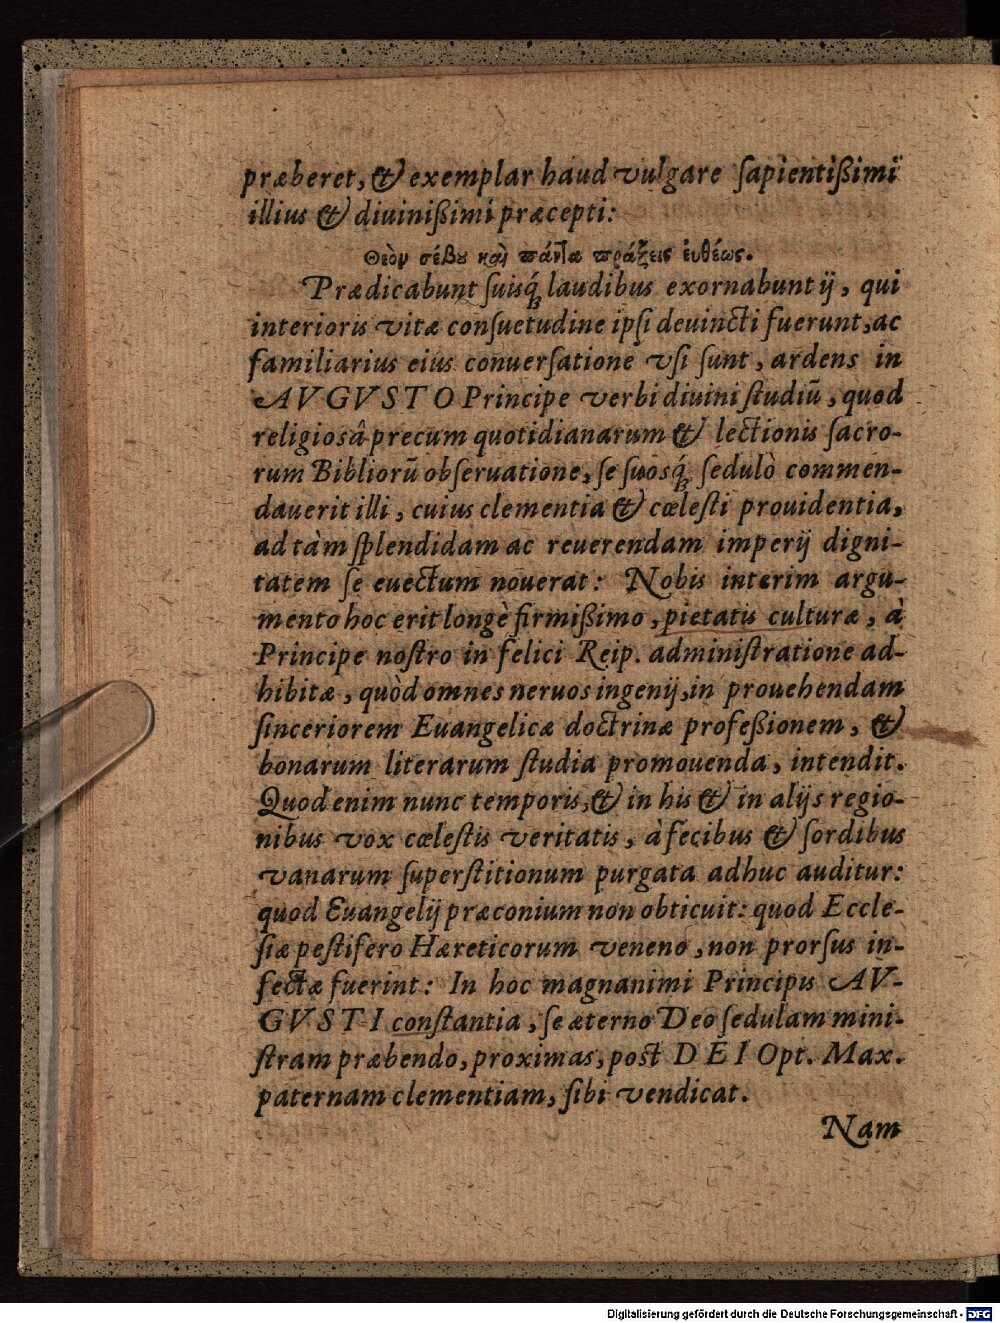 præberet, & exemplar haud vulgare ſapientißimi
illius & diuinißimi præcepti:
Θεὸν σέβου καὶ πάντα πράξεις ἐυθέως.
Prædicabunt ſuisq́; laudibus exornabunt ij, qui
interioris vitæ conſuetudine ipſi deuincti fuerunt, ac
familiarius eius conuerſatione vſi ſunt, ardens in
AVGVSTO Principe verbi diuini ſtudiū, quod
religiosâ precum quotidianarum & lectionis ſacro-
rum Bibliorū obſeruatione, ſe ſuosq́; ſedulò commen-
dauerit illi, cuius clementia & cœleſti prouidentia,
ad tàm ſplendidam ac reuerendam imperij digni-
tatem ſe euectum nouerat: Nobis interim argu-
mento hoc erit longè firmißimo, pietatis culturæ, à
Principe noſtro in felici Reip. adminiſtratione ad-
hibitæ, quòd omnes neruos ingenij, in prouehendam
ſinceriorem Euangelicæ doctrinæ profeßionem, &
bonarum literarum ſtudia promouenda, intendit.
Quod enim nunc temporis, & in his & in alijs regio-
nibus vox cœleſtis veritatis, à fecibus & ſordibus
vanarum ſuperſtitionum purgata adhuc auditur:
quod Euangelij præconium non obticuit: quod Eccle-
ſiæ peſtifero Hæreticorum veneno, non prorſus in-
fectæ fuerint: In hoc magnanimi Principis AV-
GVSTI conſtantia, ſe æterno Deo ſedulam mini-
ſtram præbendo, proximas, poſt DEI Opt. Max.
paternam clementiam, ſibi vendicat.
Nam
Digitalisierung gefördert durch die Deutsche Forschungsgemeinschaft - DFG